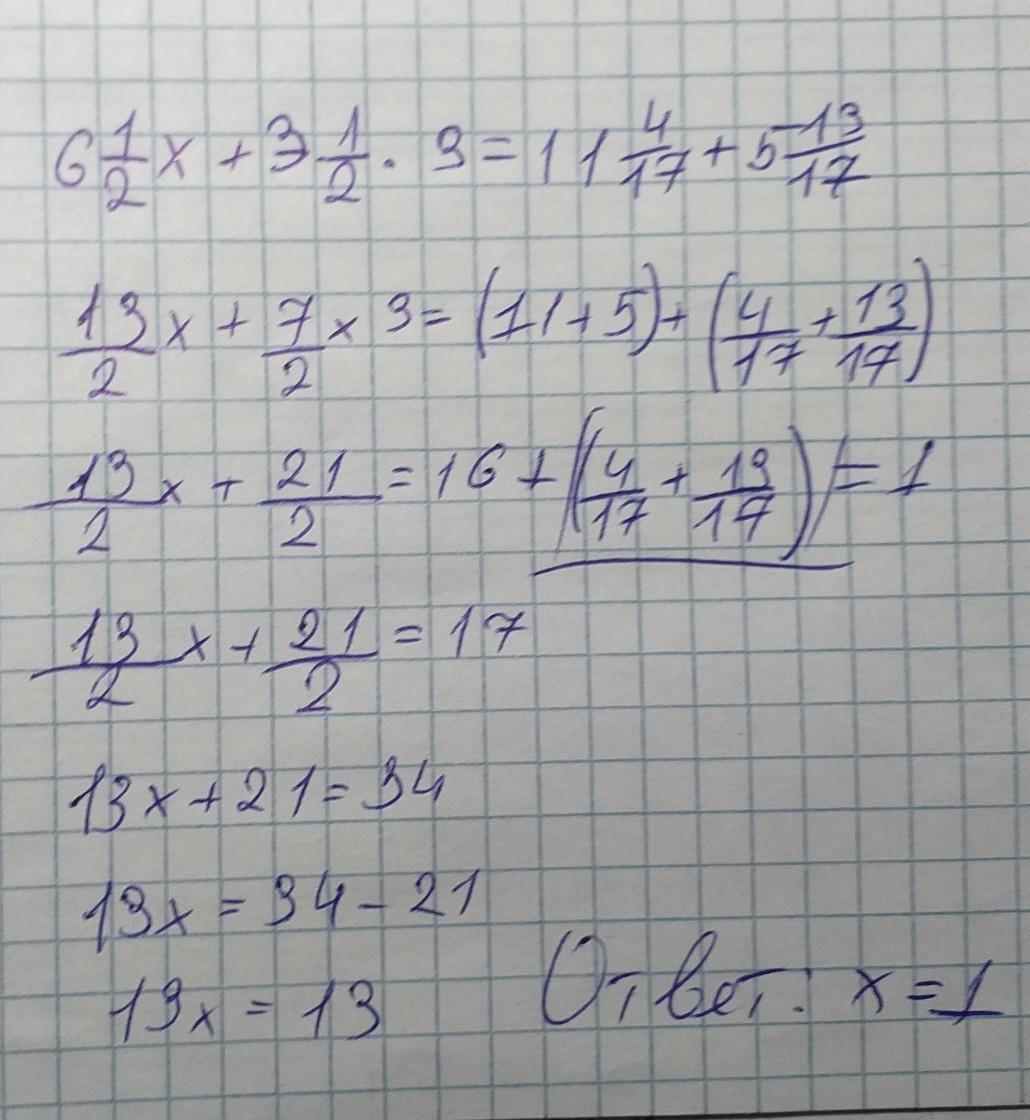 6 1/2 x + 3 1/2 · 3 = 11 4/17 + 5 13/17
13/2 x + 7/2 × 3 = (11 + 5) + (4/17 + 13/17)
13/2 x + 21/2 = 16 + (4/17 + 13/17) = 1
13/2 x + 21/2 = 17
13x + 21 = 34
13x = 34 - 21
13x = 13 Ответ: x = 1